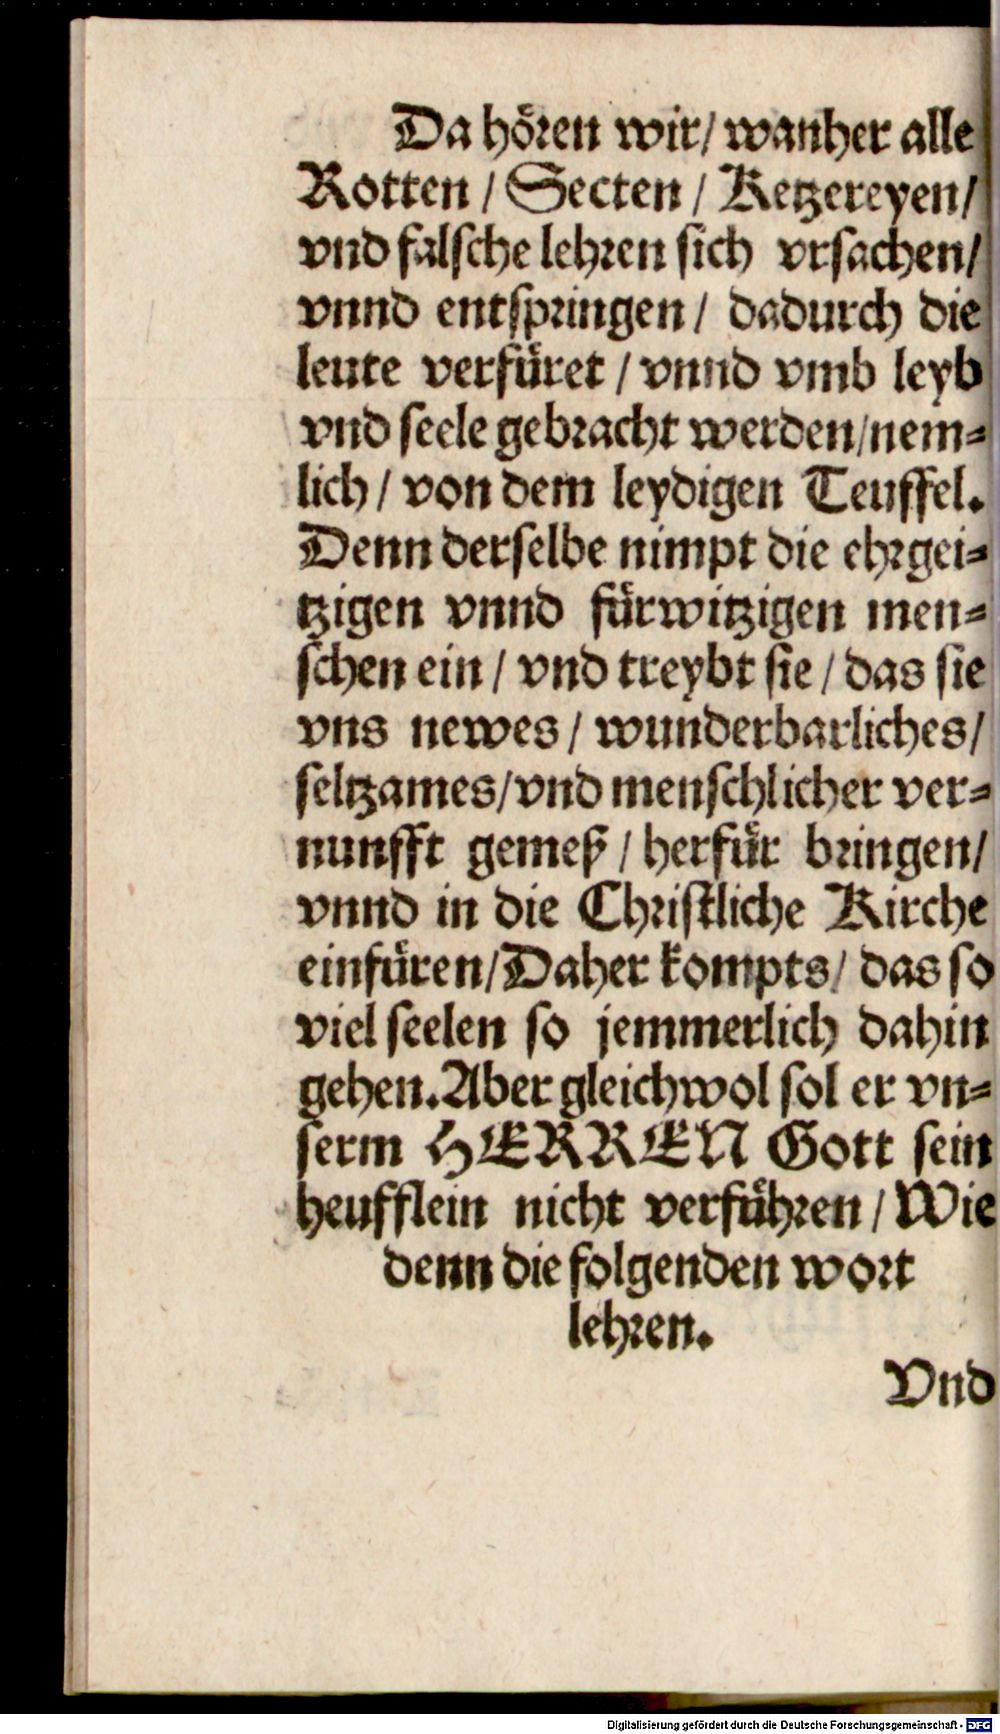 Da hören wir/ wanher alle
Rotten / Secten / Ketzereyen/
vnd falsche lehren sich vrsachen/
vnnd entspringen / dadurch die
leute verfüret / vnnd vmb leyb
vnd seele gebracht werden/nem⸗
lich / von dem leydigen Teuffel.
Denn derselbe nimpt die ehrgei⸗
tzigen vnnd fürwitzigen men⸗
schen ein / vnd treybt sie / das sie
vns newes / wunderbarliches/
seltzames/vnd menschlicher ver⸗
nunfft gemeß / herfür bringen/
vnnd in die Christliche Kirche
einfüren/Daher kompts/ das so
viel seelen so jemmerlich dahin
gehen.Aber gleichwol sol er vn⸗
serm HERREN Gott sein
heufflein nicht verführen / Wie
denn die folgenden wort
lehren.
Vnd
Digitalisierung gefördert durch die Deutsche Forschungsgemeinschaft - DFG